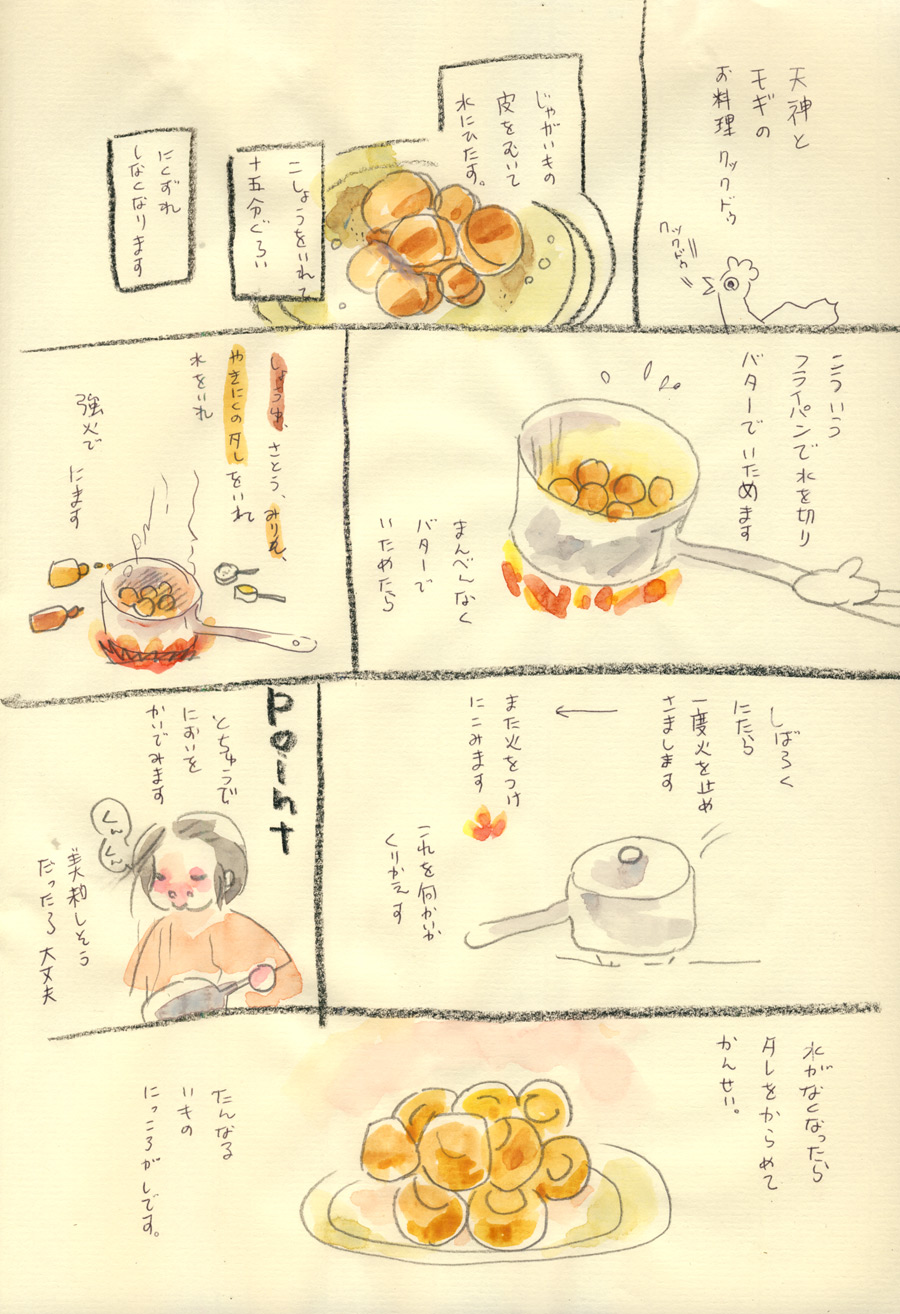 天神と
モギの
お料理 クックドゥ
クックドゥ
じゃがいもの
皮をむいて
水にひたす。
こしょうをいれて
十五分ぐらい
にくずれ
しなくなります
こういう
フライパンで水を切り
バターでいためます
まんべんなく
バターで
いためたら
しょうゆ、さとう、みりん、
やきにくのタレをいれ
水をいれ
強火で にます
しばらく
にたら
一度火を止め
さまします
また火をつけ
にこみます
これを何かいか
くりかえす
point
とちゅうで
においを
かいでみます
くん
くん
美和しそう
だったら大丈夫
水がなくなったら
タレをからめて
かんせい。
たんなる
いもの
にっころがしです。